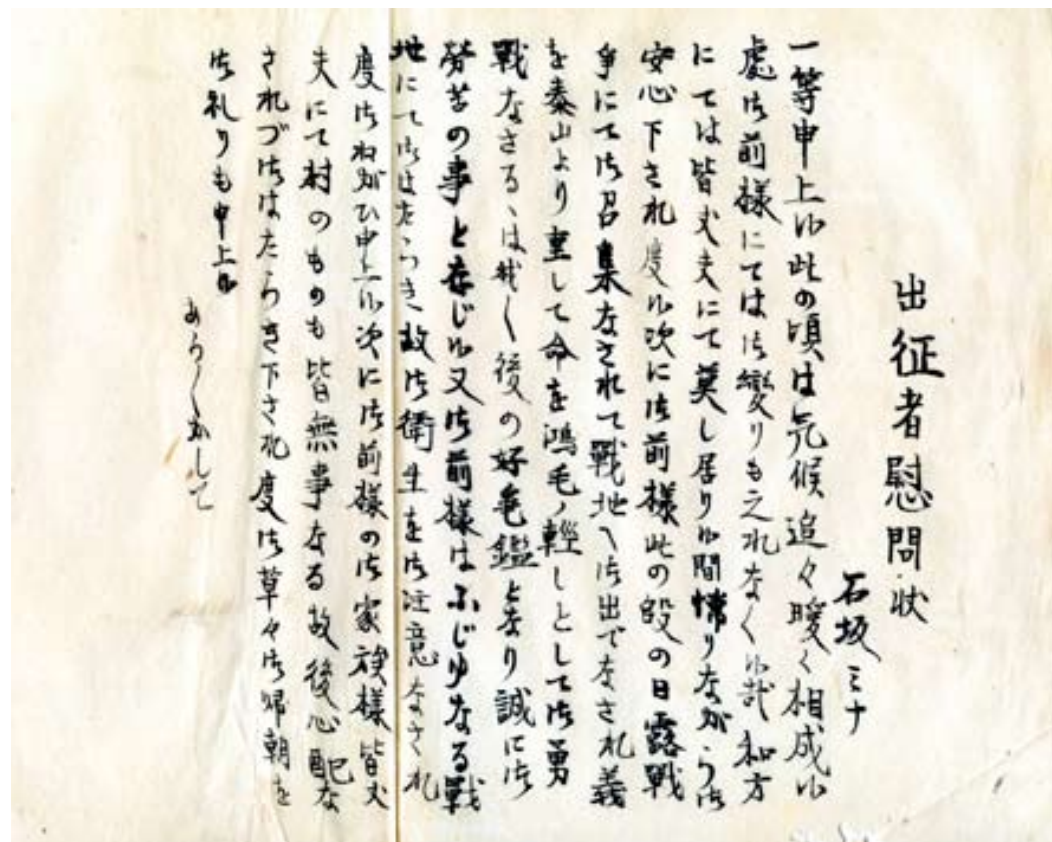 出征者慰問状
石坂ミナ
一筆申上候此の頃は気候追々暖く相成候
處御前様にてはは御變りも之れなく候哉私方
にては皆丈夫にて莫し居り候間憚りながら御
安心下され度候次に御前様此の段の日露戦
争にて御召集なされて戦地へ御出でなされ義
を泰山より重して命を鴻毛ノ輕しとして御勇
戦なさるゝは我々後の好亀鑑となり誠に御
労苦の事と存じ候又御前様はふじゆなる戦
地にて御はたらき故御衛生を御注意なされ
度御ねがひ申上候次に御前様の御家族様皆丈
夫にて村のものも皆無事なる故後心配な
されづ御はたらき下され度御草々御帰朝を
御礼りも申上候
あら〱かして